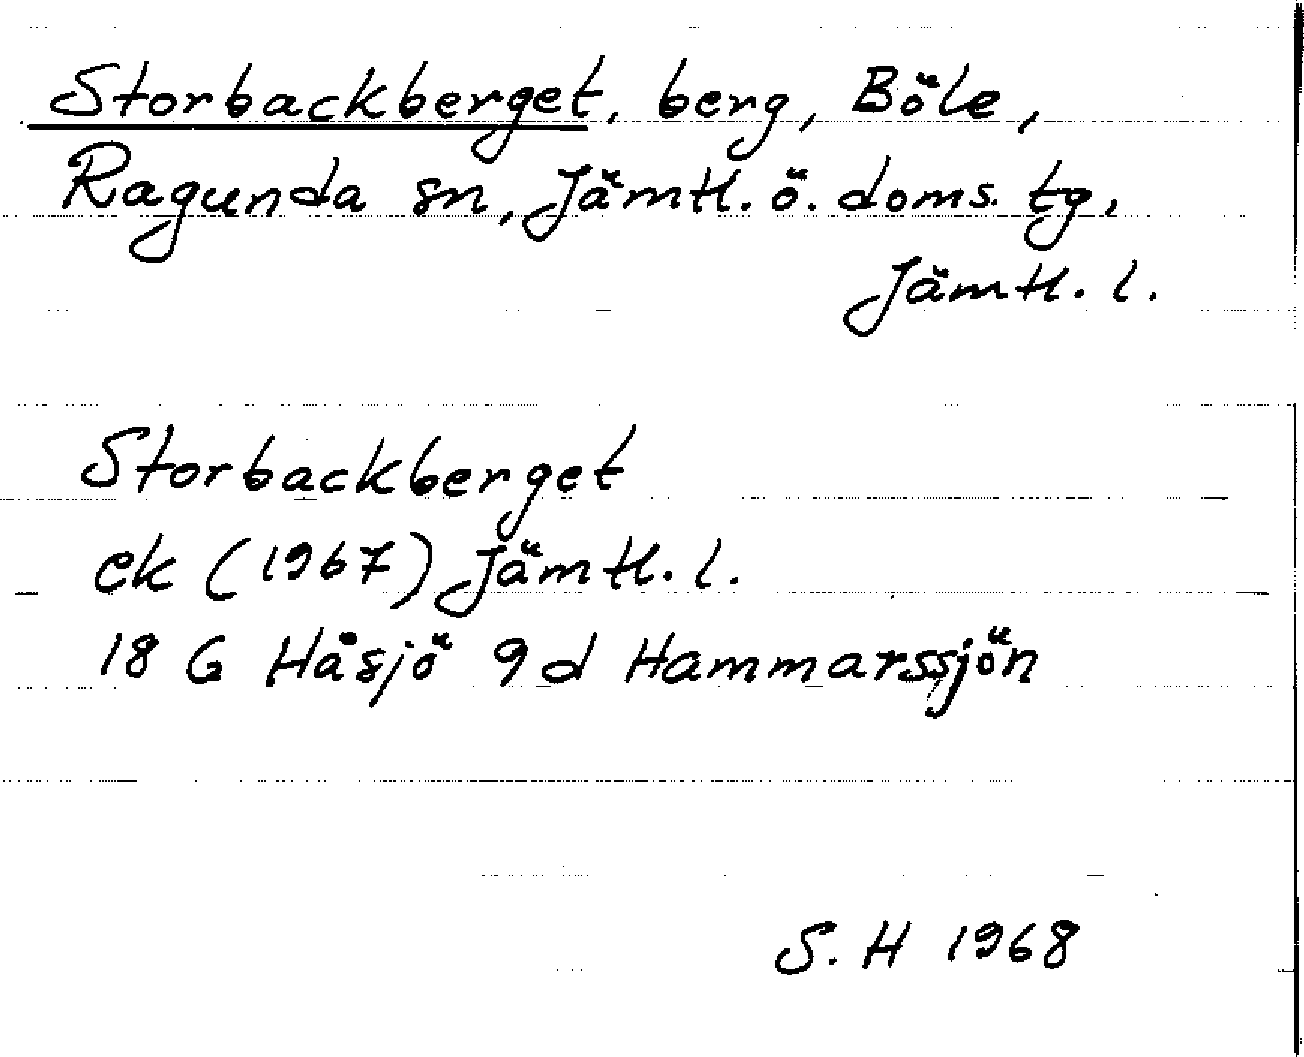 Storbackberget, berg, Böle,
Ragunda sn, Jämtl. ö. doms. tg,
Jämtl. l.
Storbackberget
ek (1967) Jämtl. l.
18 G Håsjö 9d Hammarssjön
S. H 1968